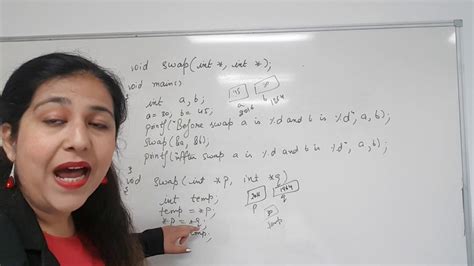 void swap(int *, int *);
void main()
{
int a, b;
a=30, b=45;
printf("Before swap a is %d and b is %d", a, b);
swap(&a, &b);
printf("After swap a is %d and b is %d", a, b);
}
void swap(int *p, int *q)
int temp;
temp = *p;
*p = *q;
45
a
b
p
q
temp